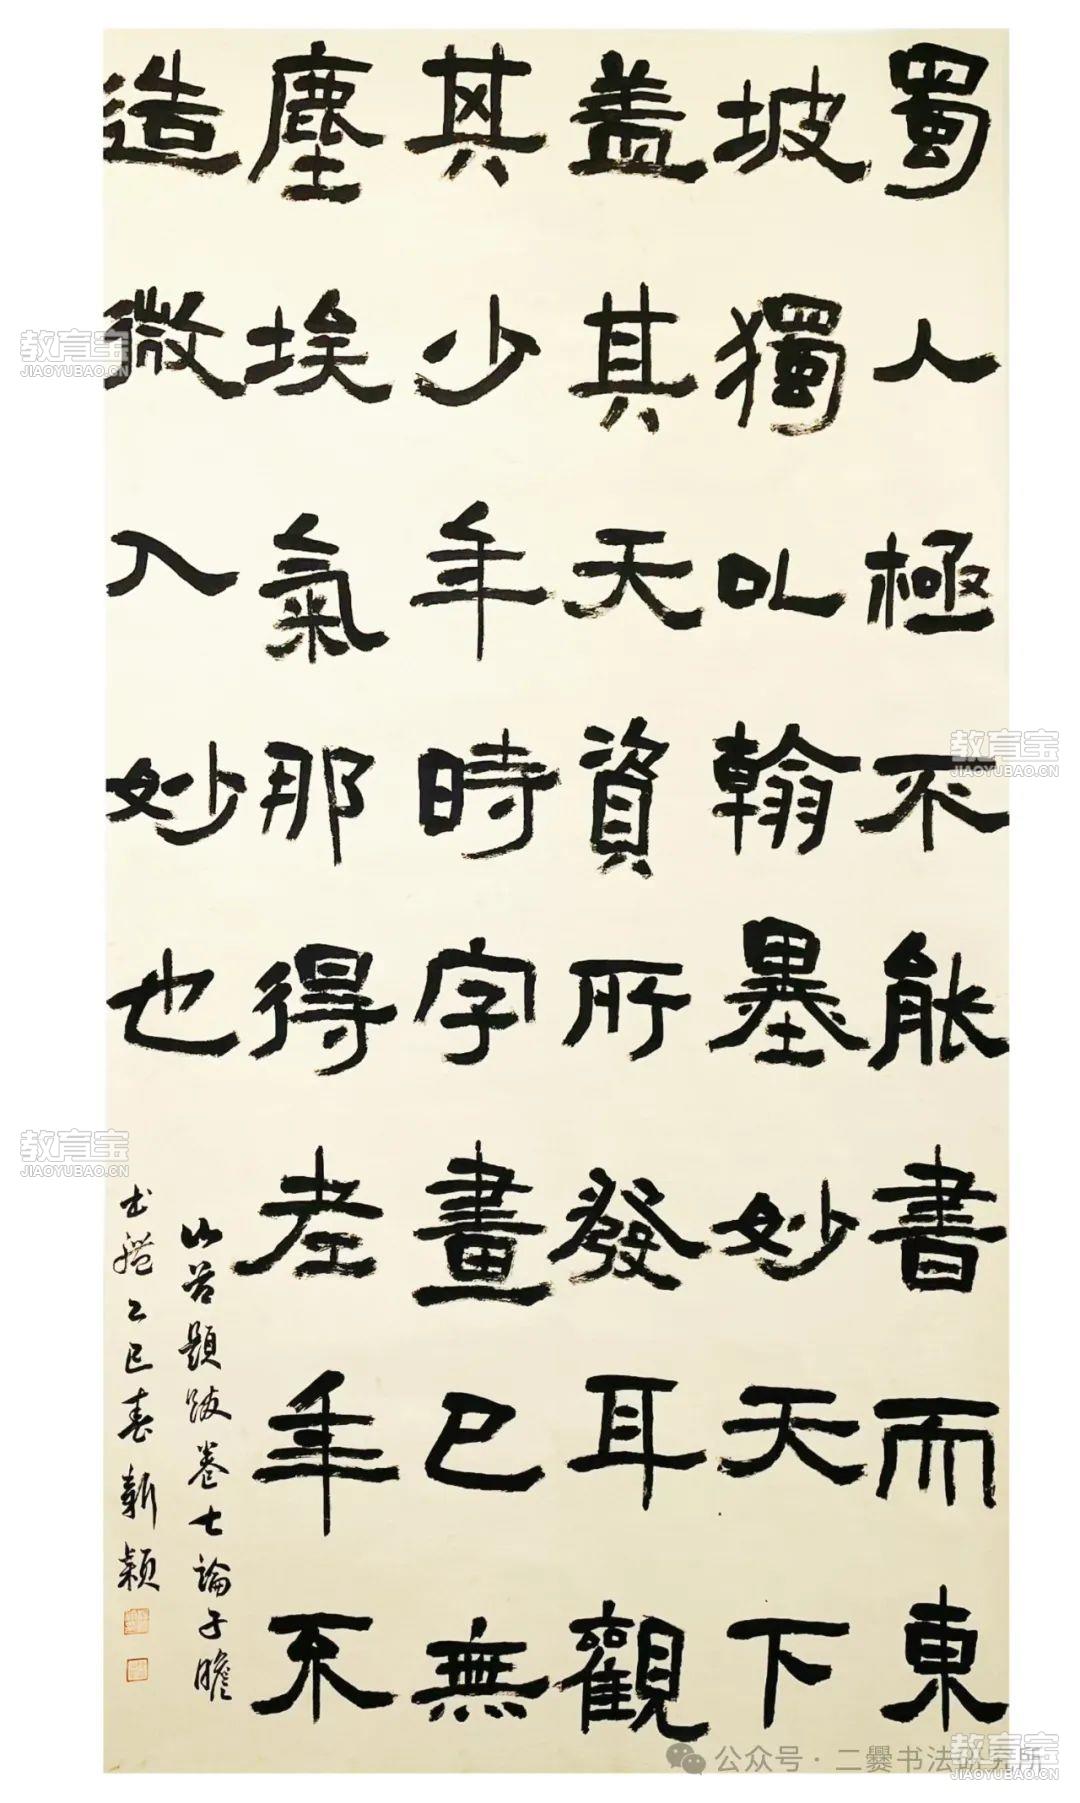 蜀人極不能書而東
坡獨以翰墨妙天下
蓋其天資所發耳觀
其少年時字畫已無
塵埃氣那得老年不
造微入妙也
山谷題跋卷七論子瞻
書體乙巳春新穎
教育宝
JIAOYUBAO.CN
教育宝
JIAOYUBAO.CN
教育宝
JIAOYUBAO.CN
教育宝
JIAOYUBAO.CN
公众号·二爨书法研究所